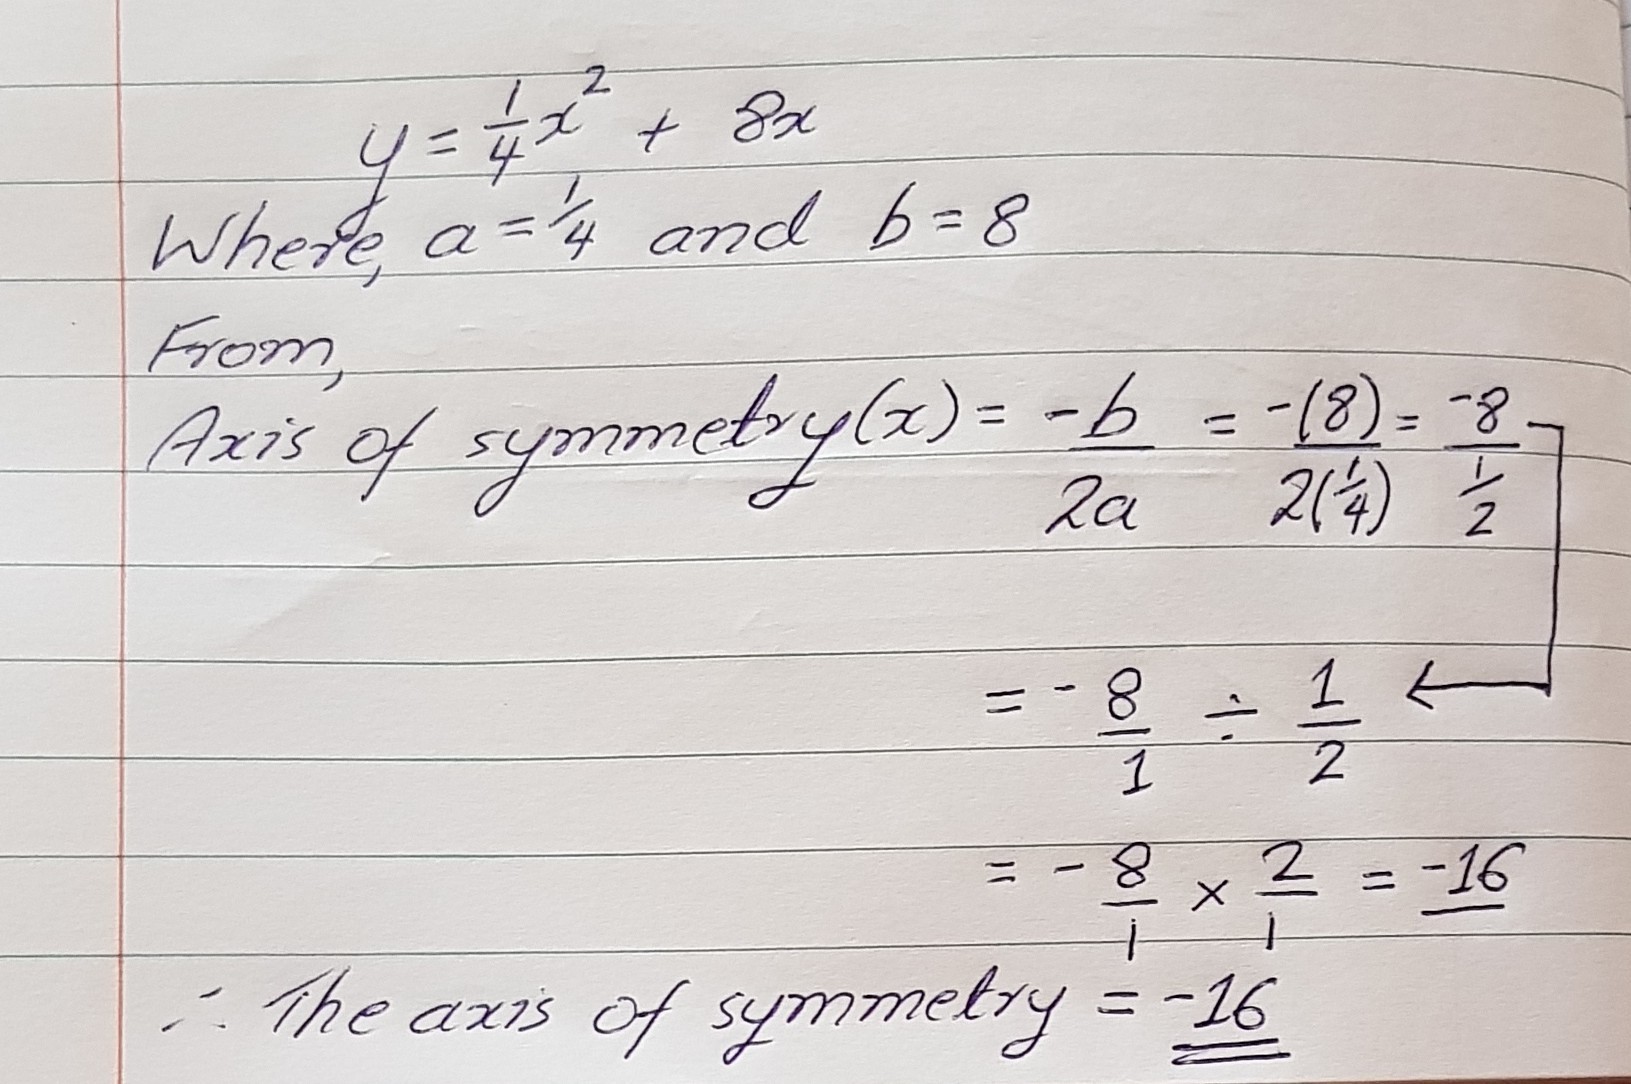 y = 1/4 x² + 8x
Where, a = 1/4 and b = 8
From,
Axis of symmetry (x) = -b/2a = -(8)/2(1/4) = -8/(1/2)
= - 8/1 ÷ 1/2
= - 8/1 × 2/1 = -16
∴ The axis of symmetry = -16